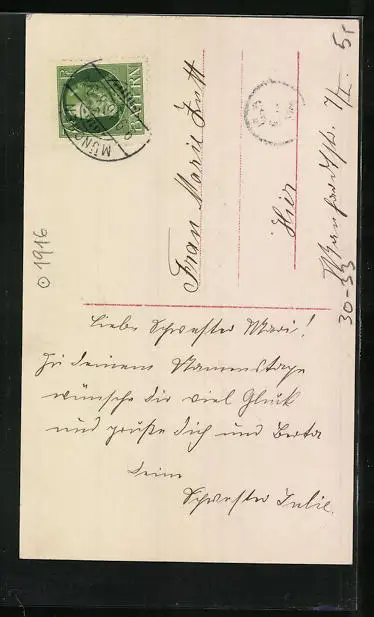 BAYERN
MÜNCHEN
Frau Marie Zutt
Hier
7/II. 5r
30-33
⊙ 1916
Liebe Schwester Marie!
Zu deinem Namenstage
wünsche dir viel Glück
und grüße dich und Berta
deine
Schwester Julie.